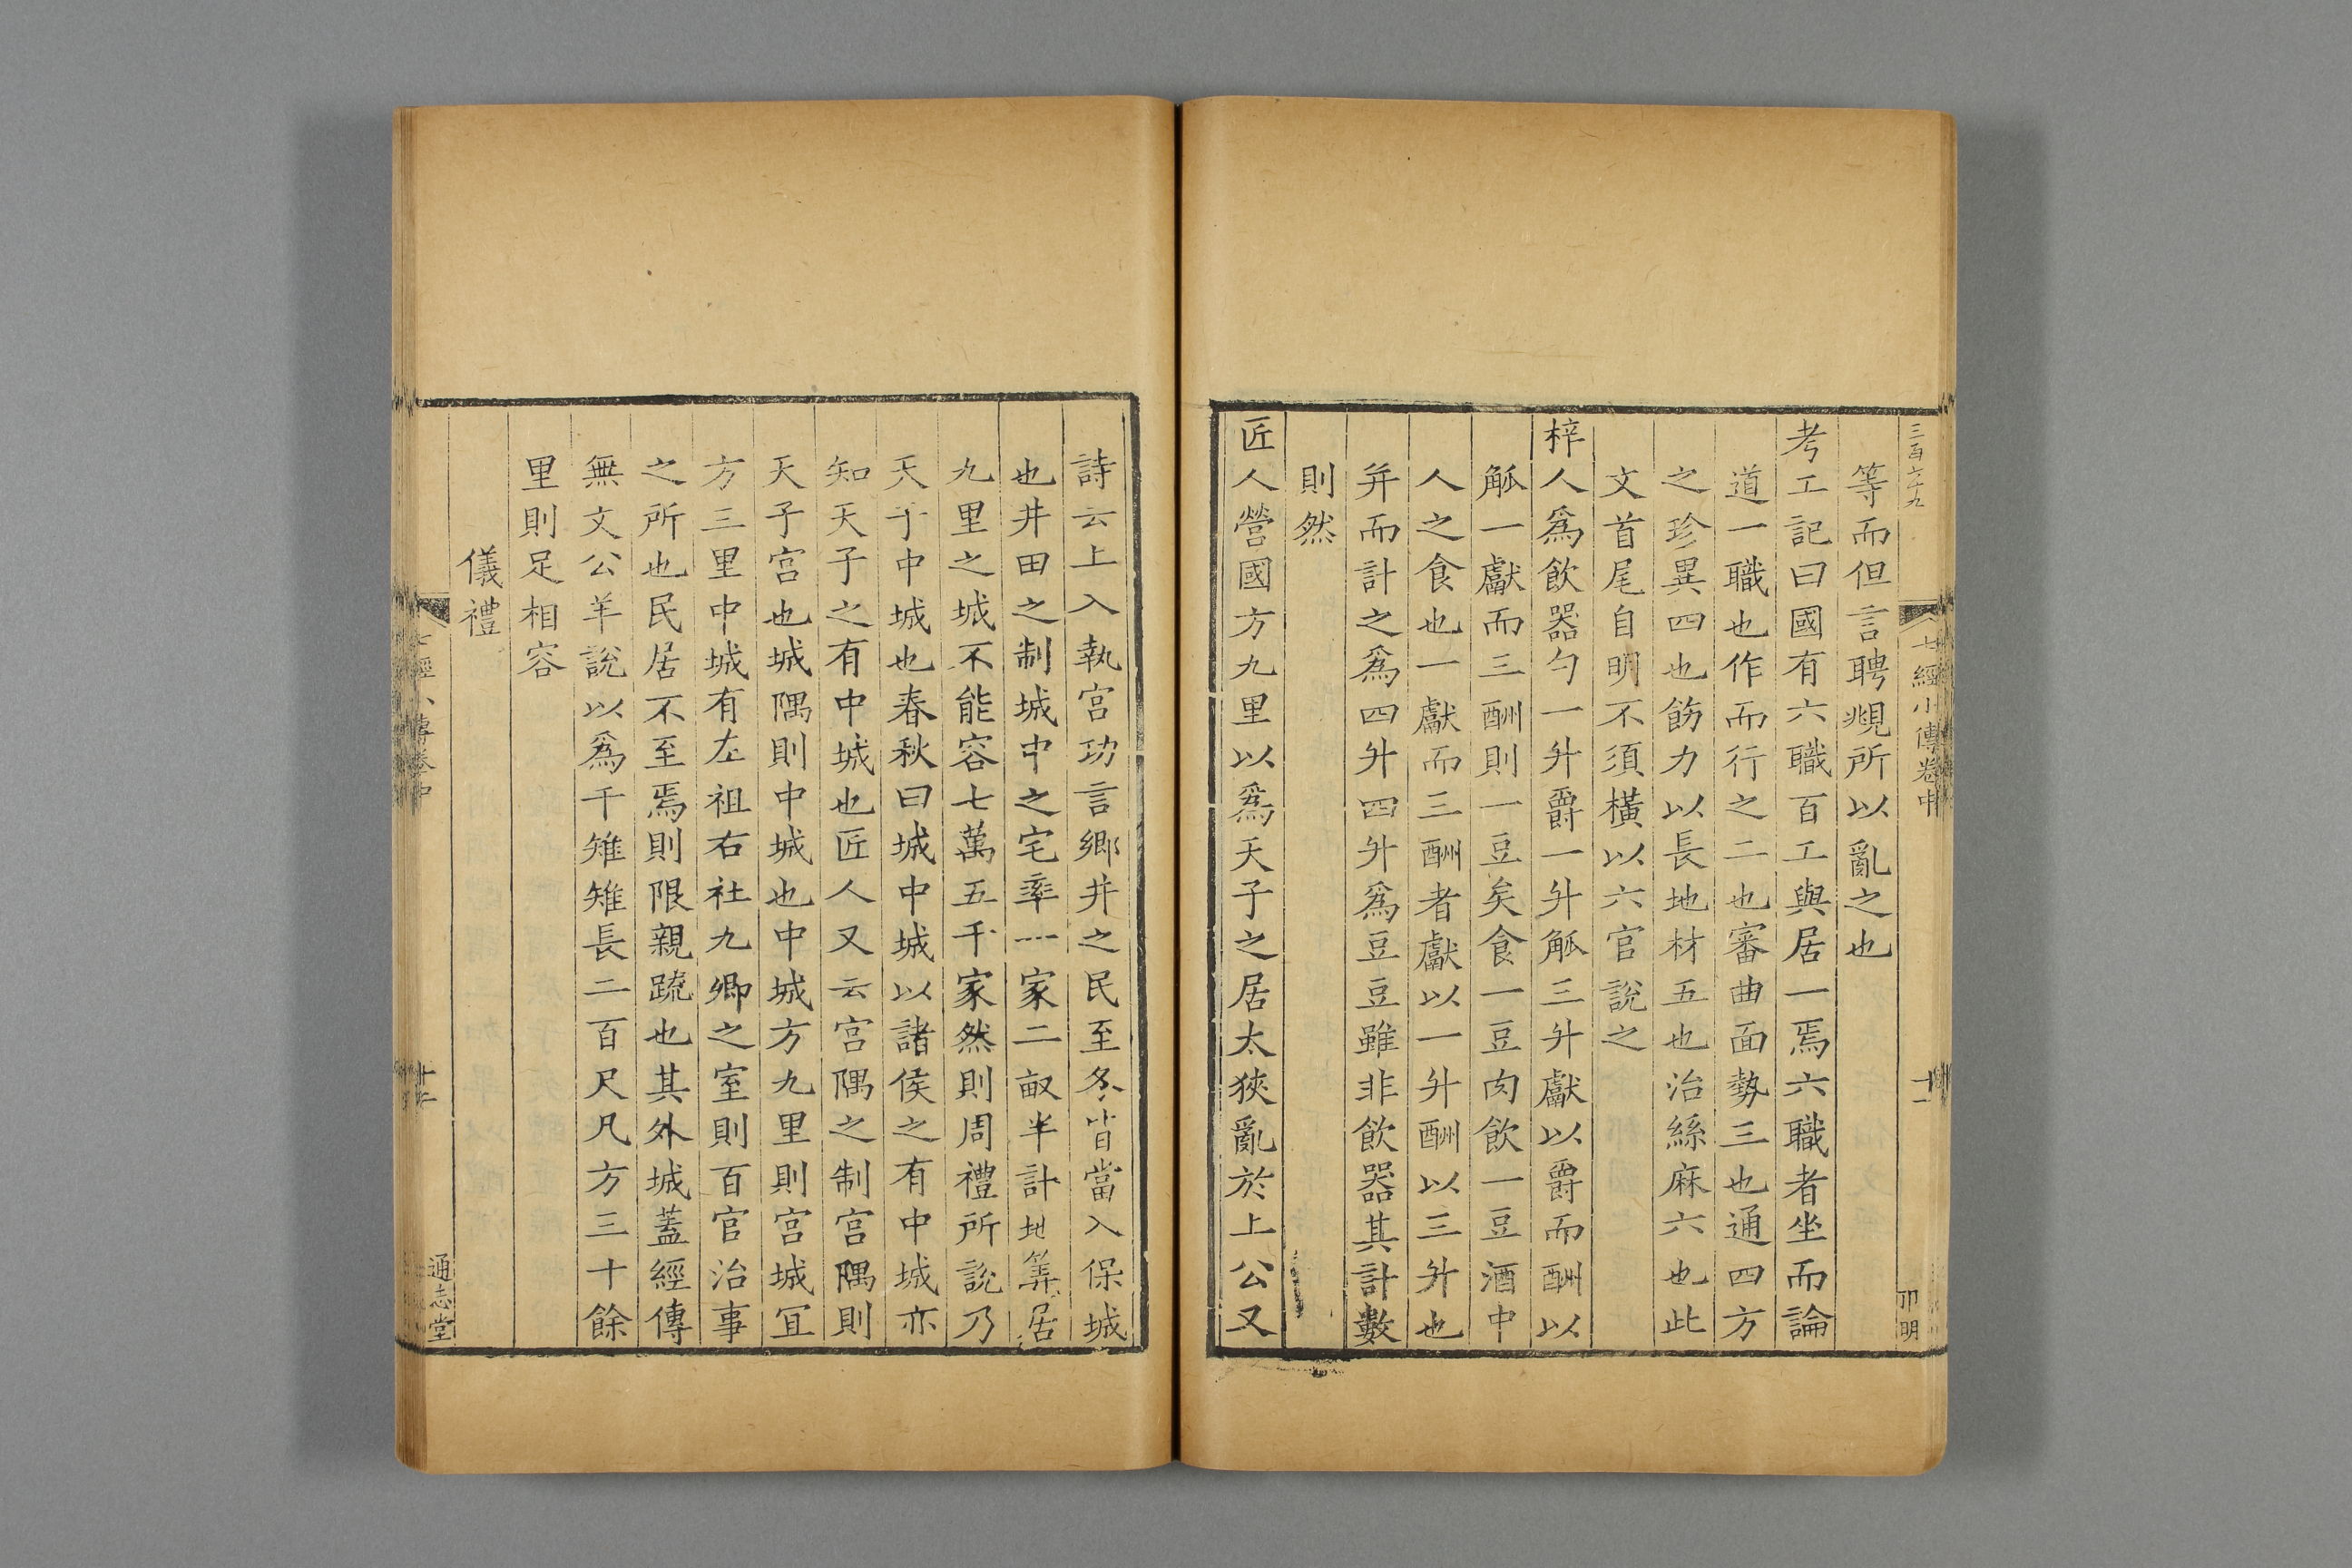 三百六十九
七經小傳卷中
十一
卯明
等而但言聘覜所以亂之也
考工記曰國有六職百工與居一焉六職者坐而論
道一職也作而行之二也審曲面勢三也通四方
之珍異四也飭力以長地材五也治絲麻六也此
文首尾自明不須橫以六官說之
梓人爲飲器勺一升爵一升觚三升獻以爵而酬以
觚一獻而三酬則一豆矣食一豆肉飲一豆酒中
人之食也一獻而三酬者獻以一升酬以三升也
并而計之爲四升四升爲豆豆雖非飲器其計數
則然
匠人營國方九里以爲天子之居太狹亂於上公又
詩云上入執宮功言鄉井之民至冬皆當入保城
也井田之制城中之宅率一家二畝半計地筭居
九里之城不能容七萬五千家然則周禮所說乃
天子中城也春秋曰城中城以諸侯之有中城亦
知天子之有中城也匠人又云宮隅之制宮隅則
天子宮也城隅則中城也中城方九里則宮城宜
方三里中城有左祖右社九卿之室則百官治事
之所也民居不至焉則限親䟽也其外城蓋經傳
無文公羊說以爲千雉雉長二百尺凡方三十餘
里則足相容
儀禮
七經小傳卷中
通志堂